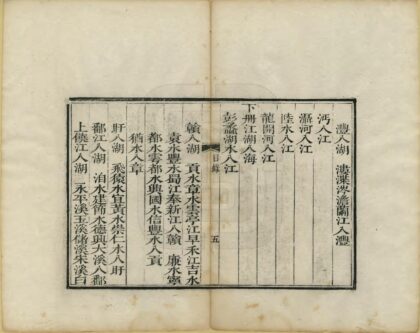 澧入湖 漊渫涔澹蘭江入澧
沔入江
灄河入江
陸水入江
龍開河入江
下冊江湖入海
彭蠡湖水入江
目錄 五
贛入湖 貢水章水雲亭江旱禾江吉水
袁水豐水蜀江奉新江入贛 廉水寧
都水雩都水興國水信豐水入貢
猶水入章
盱入湖 飛猿水宜黃水崇仁水入盱
鄱江入湖 泊水建節水德興大溪入鄱
上饒江入湖 永平溪玉溪儲溪朱溪白